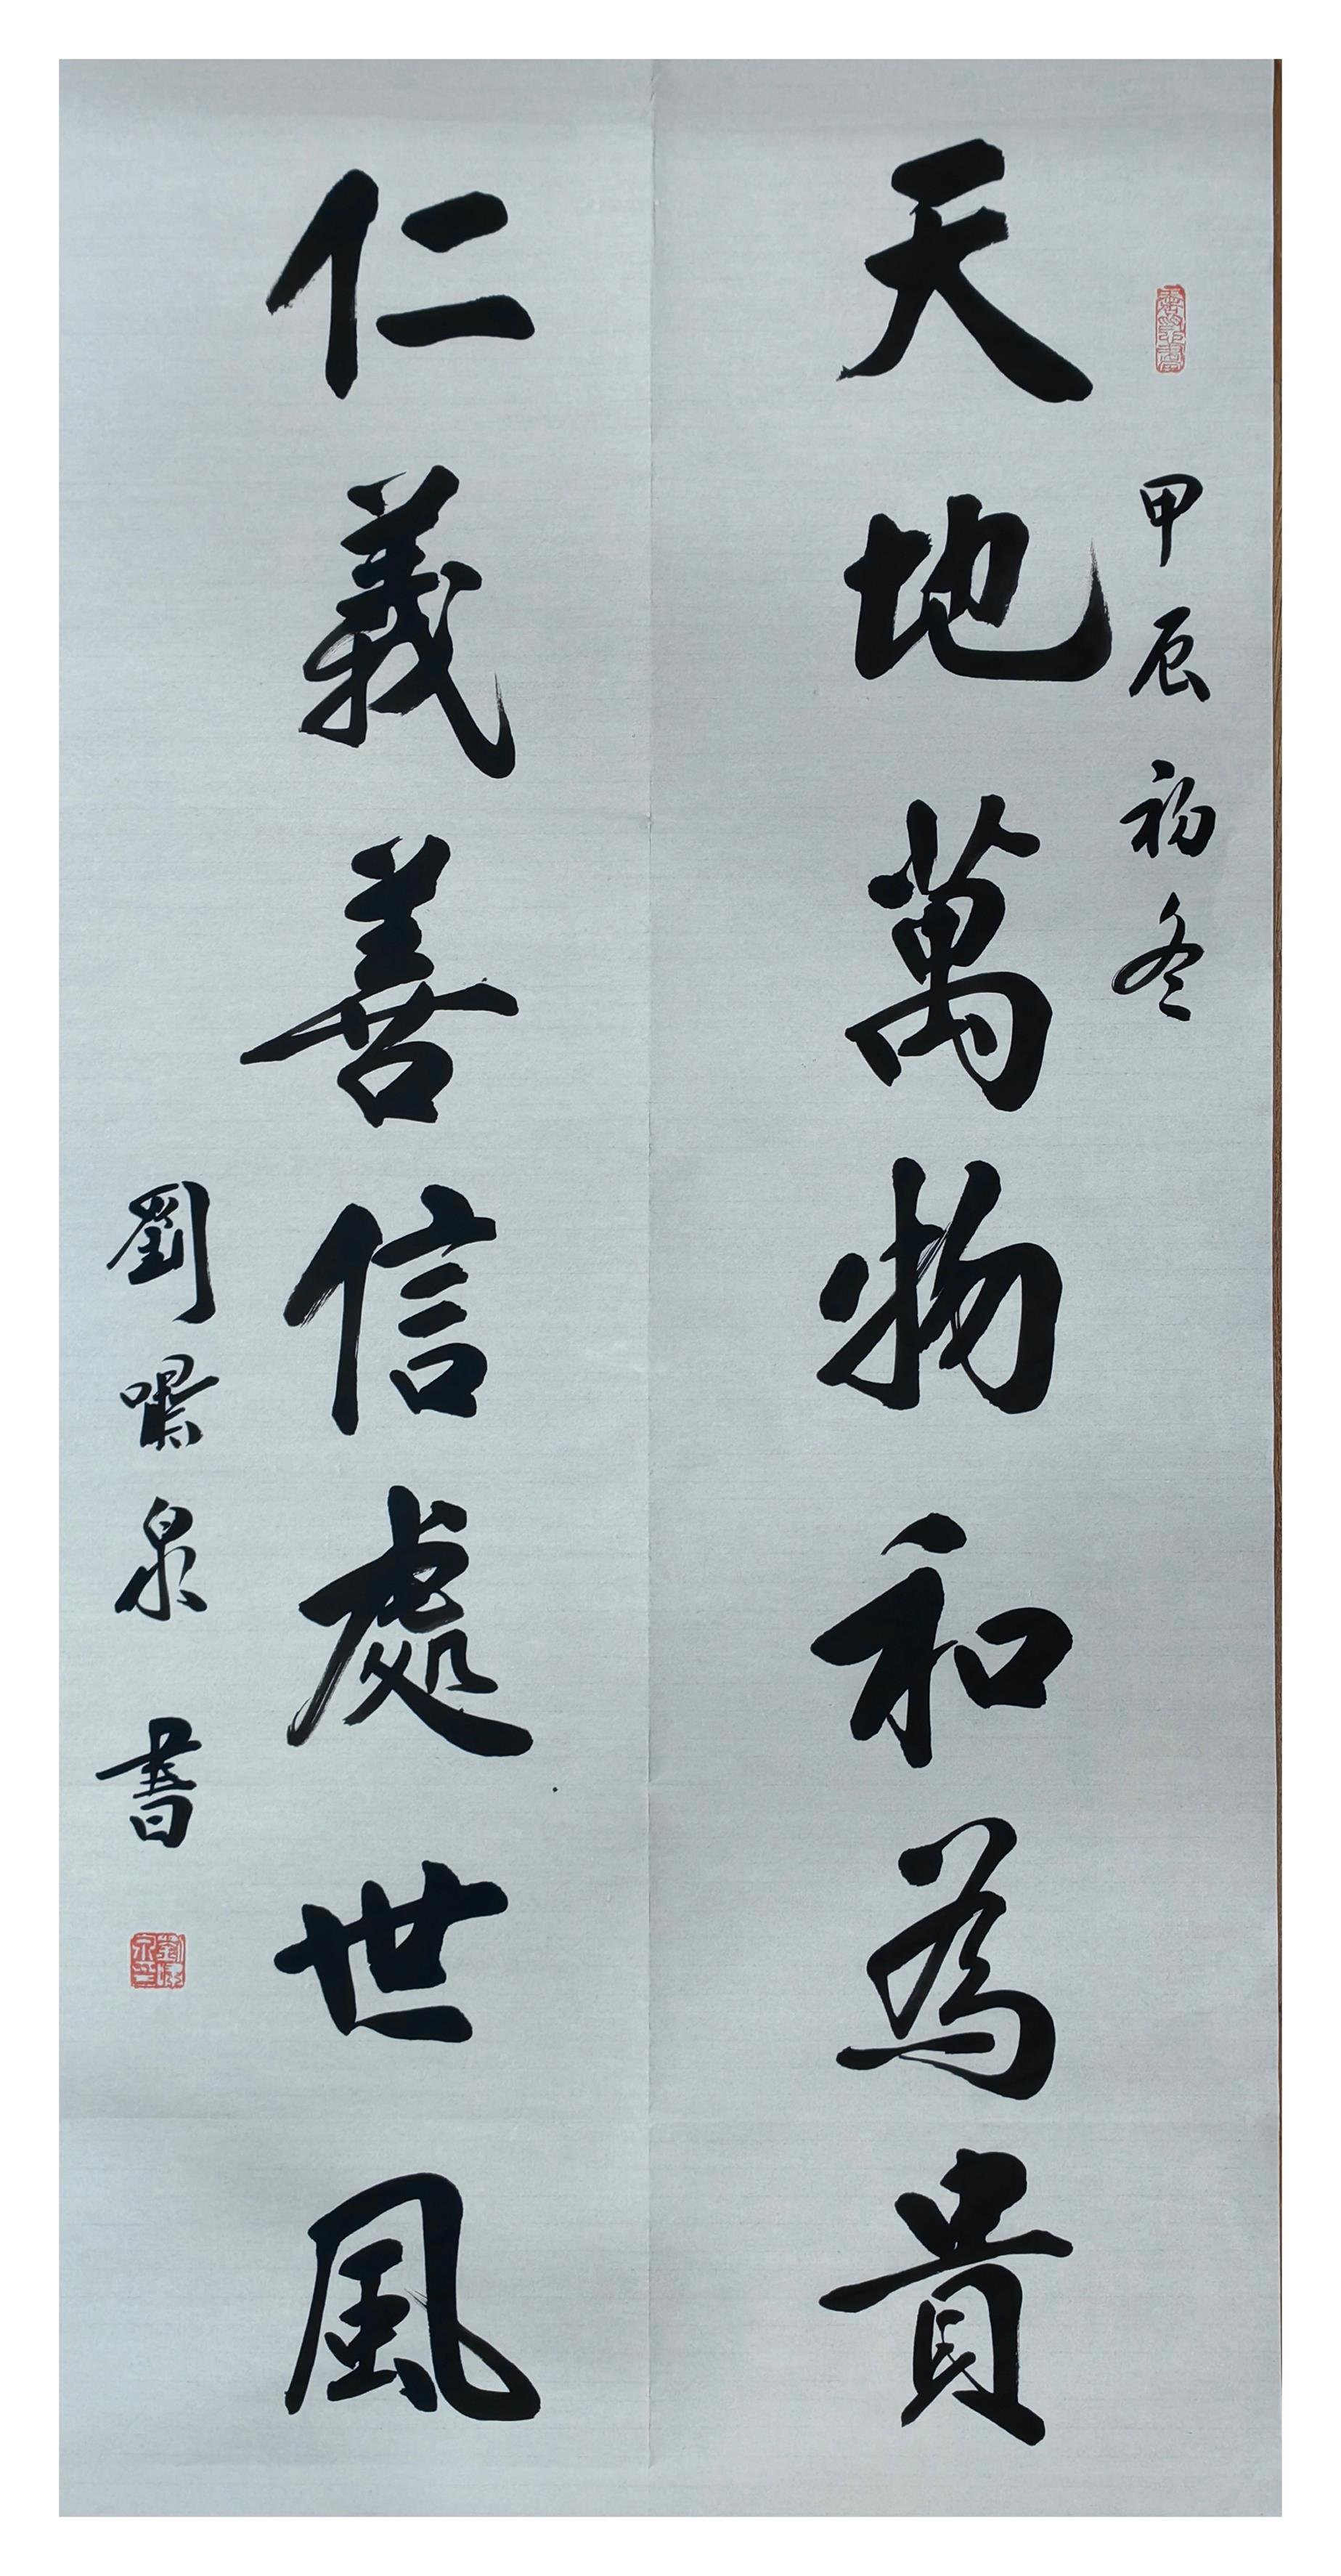 甲辰初冬
天地萬物和為貴
仁義善信處世風
劉泉書